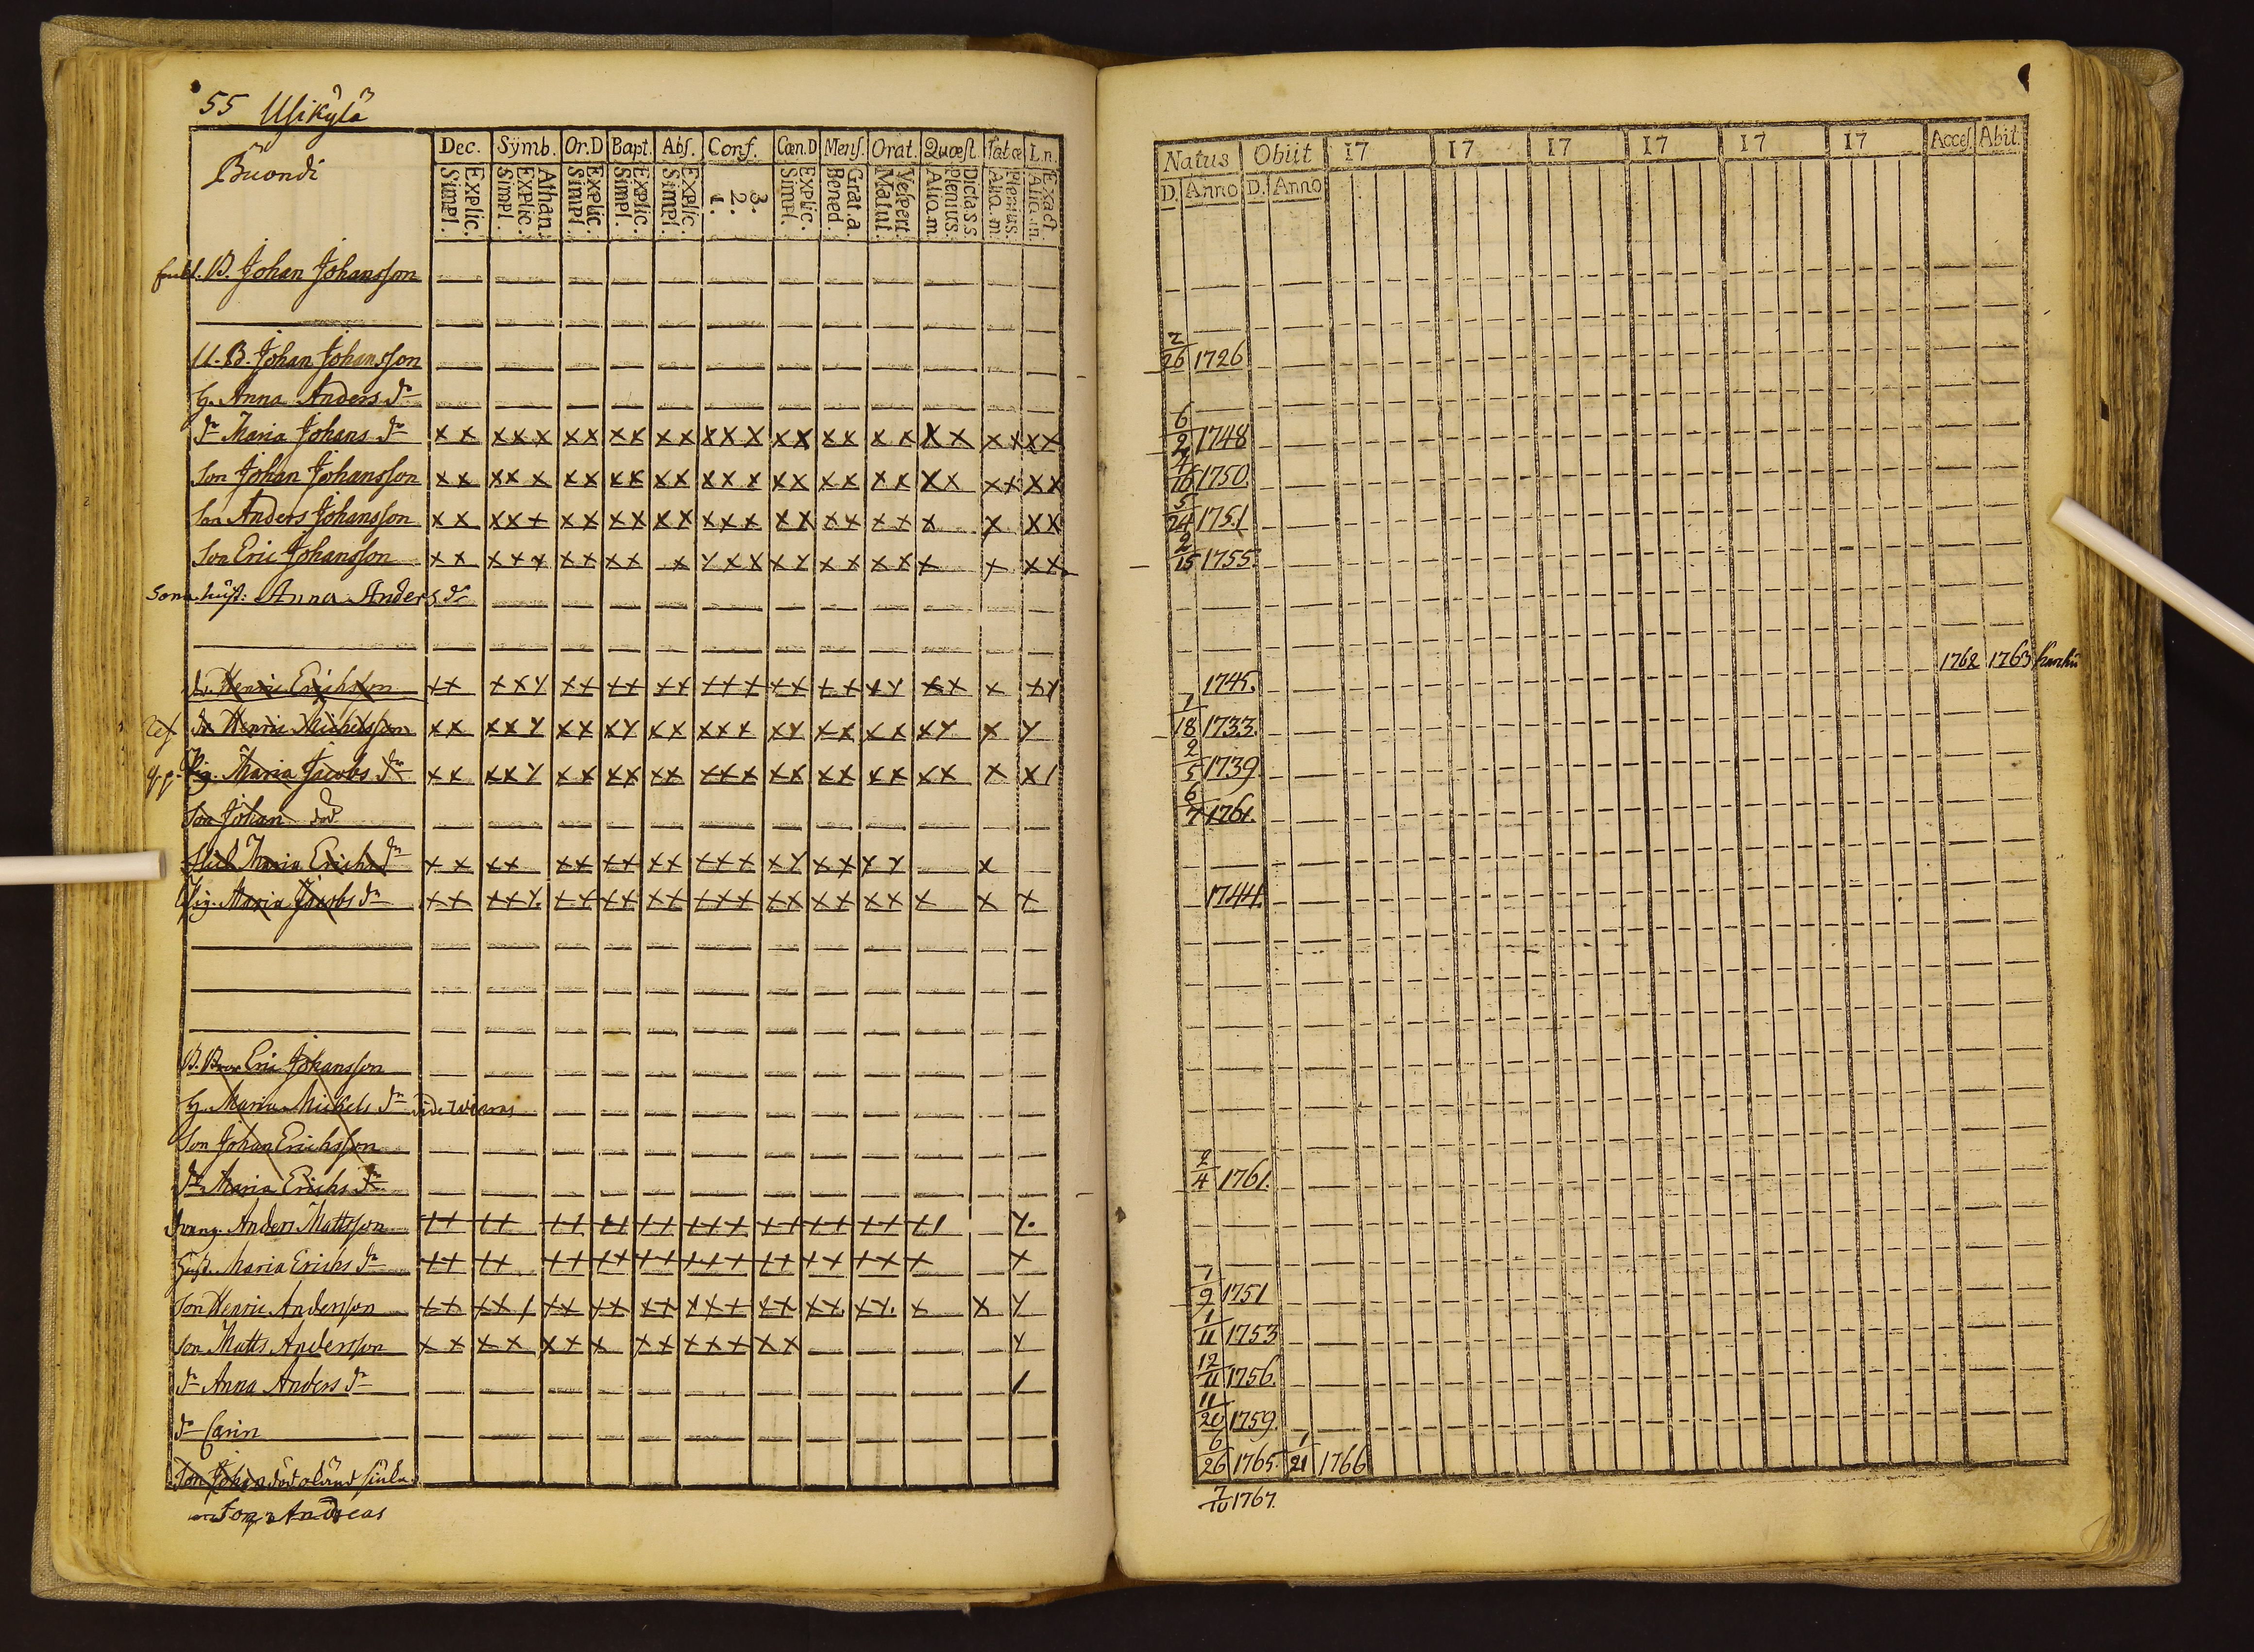 55 Usikylä
Buondi
Dec. Symb. Or.D Bapt. Abs. Conf. Cœn.D Mens. Orat. Quæst. Tabæ L.n.
Explic. Simpl. Athan. Explic. Simpl. Explic. Simpl. Explic. Simpl. Explic. Simpl. 3. 2. 1. Explic. Simpl. Grat.a. Bened. Vespert. Matut. Dicta SS Plenius. Aliq.m. Plenius. Aliq.m. Exact. Aliq.m.
B. Johan Johansson
U. B. Johan Johansson
H. Anna Anders dr
dr Maria Johans dr x x x x x x x x x x x x x x x x x x x x x x x x x x
Son Johan Johansson x x x x x x x x x x x x x x x x x x x x x x x x x x
Son Anders Johansson x x x x x x x x x x x x x x x x x x x x x x x x
Son Eric Johansson x x x x x x x x x x x x x x x x x x x x x x x
Sona hust: Anna Anders dr
dr. Henric Erichsson x x x x x x x x x x x x x x x x x x x x x x x x x
dr Henric Michelsson x x x x x x x x x x x x x x x x x x x x x x x x
Pig. Maria Jacobs dr x x x x x x x x x x x x x x x x x x x x x x x x x
Son Johan död
Maria Erichs dr x x x x x x x x x x x x x x x x x x x x
Pig. Maria Jacobs dr x x x x x x x x x x x x x x x x x x x x x x x
B. Bror Eric Johansson
H. Maria Mickels dr
Son Johan Erichsson
dr Maria Erichs dr
Anders Mattsson x x x x x x x x x x x x x x x x x x x x x x
Hust. Maria Erichs dr x x x x x x x x x x x x x x x x x x x x x
Son Henric Andersson x x x x x x x x x x x x x x x x x x x x x x x
Son Matts Andersson x x x x x x x x x x x x x x x
dr Anna Anders dr
dr Carin
Son Johan död
Son Andreas
Natus Obiit 17 17 17 17 17 17 Acces. Abit.
D. Anno D. Anno
2/26 1726
6/2 1748
4/16 1750.
5/24 1751
2/15 1755
1745. 1762 1763
1/18 1733.
2/5 1739.
6/7 1761.
1744.
2/4 1761.
1/9 1751
1/11 1753
12/11 1756.
11/20 1759.
6/26 1765. 1/21 1766
7/10 1767.